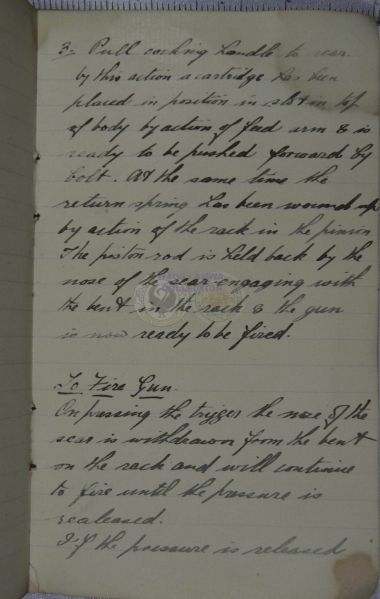 3. Pull cocking handle to rear
by this action a cartridge has been
placed in position in slot in top
of body by action of feed arm & is
ready to be pushed forward by
bolt. At the same time the
return spring has been wound up
by action of the rack in the pinion
The piston rod is held back by the
nose of the sear engaging with
the bent on the rack & the gun
is now ready to be fired.
To Fire Gun.
On pressing the trigger the nose of the
sear is withdrawn from the bent
on the rack and will continue
to fire until the pressure is
realeased.
If the pressure is released